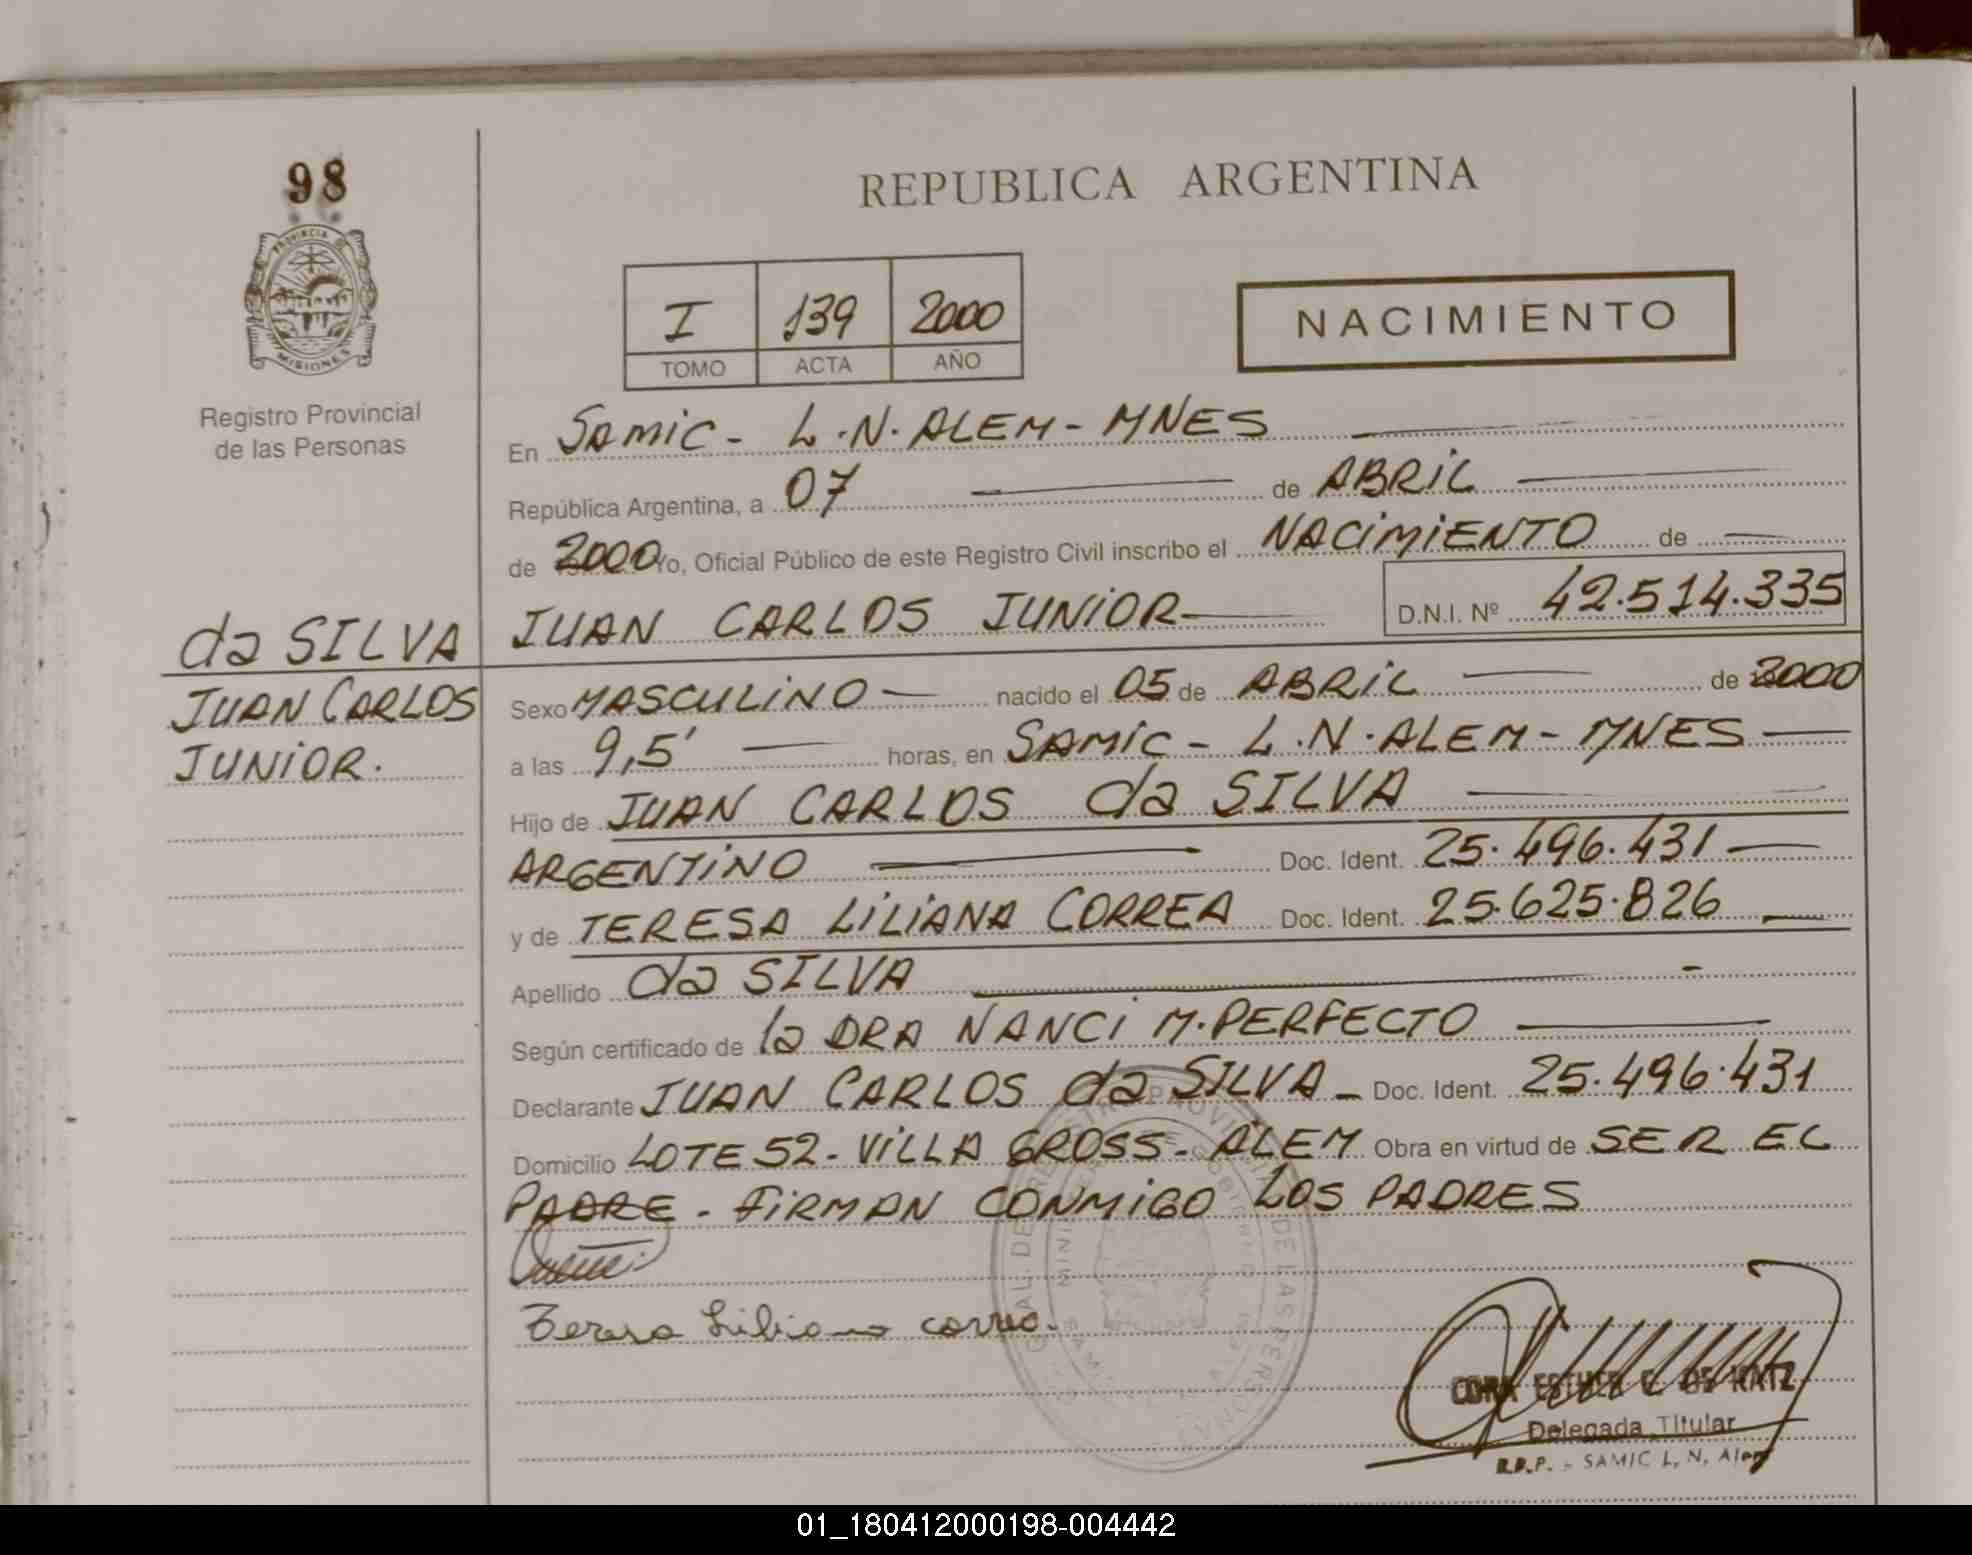 98
PROVINCIA D
MISIONES
Registro Provincial
de las Personas
da SILVA
JUAN CARLOS
JUNIOR.
REPUBLICA ARGENTINA
I 139 2000
TOMO ACTA AÑO
NACIMIENTO
En SAMIC - L.N. ALEM - MNES
República Argentina, a 07 de ABRIL
de 2000 Yo, Oficial Público de este Registro Civil inscribo el NACIMIENTO de
JUAN CARLOS JUNIOR D.N.I. Nº 42.514.335
Sexo MASCULINO nacido el 05 de ABRIL de 2000
a las 9,5' horas, en SAMIC - L.N. ALEM - MNES
Hijo de JUAN CARLOS da SILVA
ARGENTINO Doc. Ident. 25.496.431
y de TERESA LILIANA CORREA Doc. Ident. 25.625.826
Apellido da SILVA
Según certificado de la DRA NANCI M. PERFECTO
Declarante JUAN CARLOS da SILVA - Doc. Ident. 25.496.431
Domicilio LOTE 52 - VILLA GROSS - ALEM Obra en virtud de SER EL
PADRE - FIRMAN CONMIGO LOS PADRES
Teresa Liliana correa.
CORA ESTHER E. DE KATZ
Delegada Titular
R.P.P. - SAMIC L. N. Alem
01_180412000198-004442